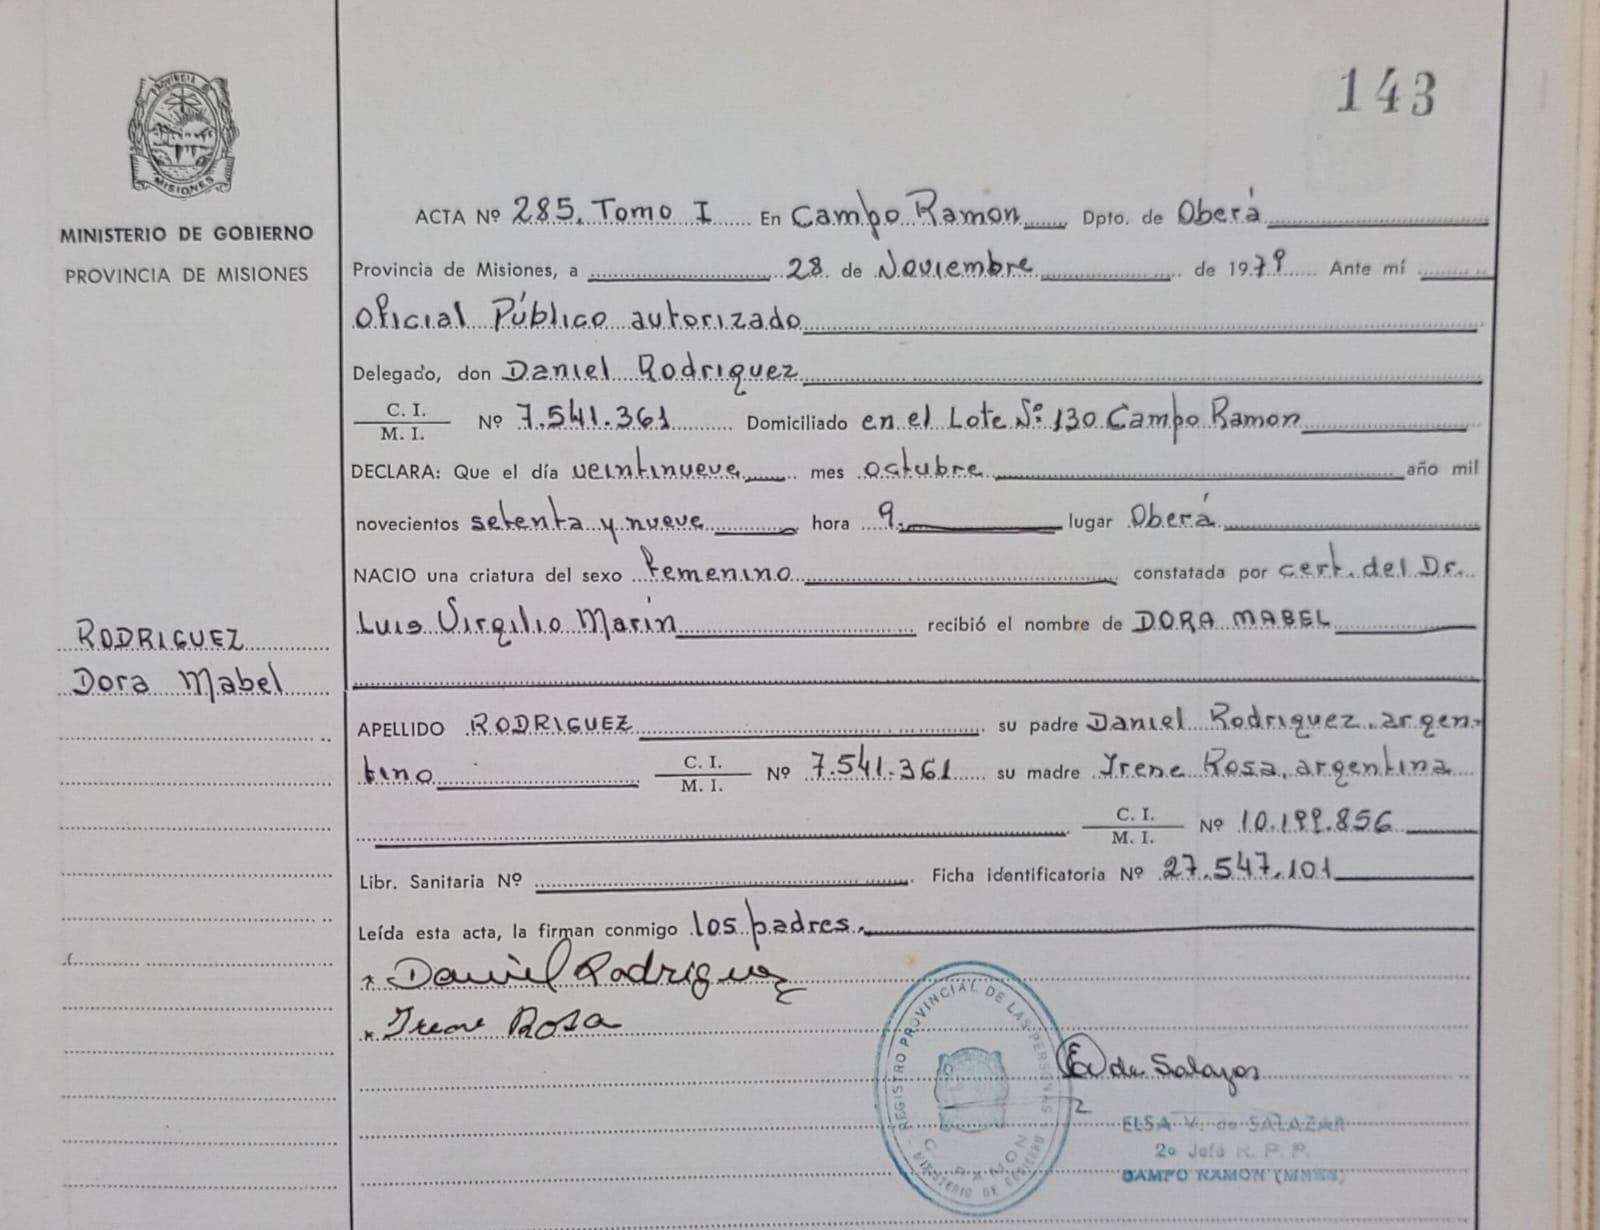 143
PROVINCIA DE
MISIONES
MINISTERIO DE GOBIERNO
PROVINCIA DE MISIONES
ACTA Nº 285. Tomo I En Campo Ramon Dpto. de Oberá
Provincia de Misiones, a 28 de Noviembre de 1979 Ante mí
Oficial Público autorizado
Delegado, don Daniel Rodriguez
C. I.
M. I. Nº 7.541.361 Domiciliado en el Lote Nº 130 Campo Ramon
DECLARA: Que el día veintinueve mes octubre año mil
novecientos setenta y nueve hora 9. lugar Oberá
NACIO una criatura del sexo femenino constatada por cert. del Dr.
Luis Virgilio Marin recibió el nombre de DORA MABEL
RODRIGUEZ
Dora Mabel
APELLIDO RODRIGUEZ su padre Daniel Rodriguez, argen-
tino C. I. M. I. Nº 7.541.361 su madre Irene Rosa, argentina
C. I.
M. I. Nº 10.199.856
Libr. Sanitaria Nº Ficha identificatoria Nº 27.547.101
Leída esta acta, la firman conmigo los padres.
x Daniel Rodriguez
x Irene Rosa
REGISTRO PROVINCIAL DE LAS PERSONAS
C. RAMON
MINISTERIO DE GOBIERNO
E de Salazar
ELSA V. de SALAZAR
2º Jefe R. P. P.
CAMPO RAMON (MNES)